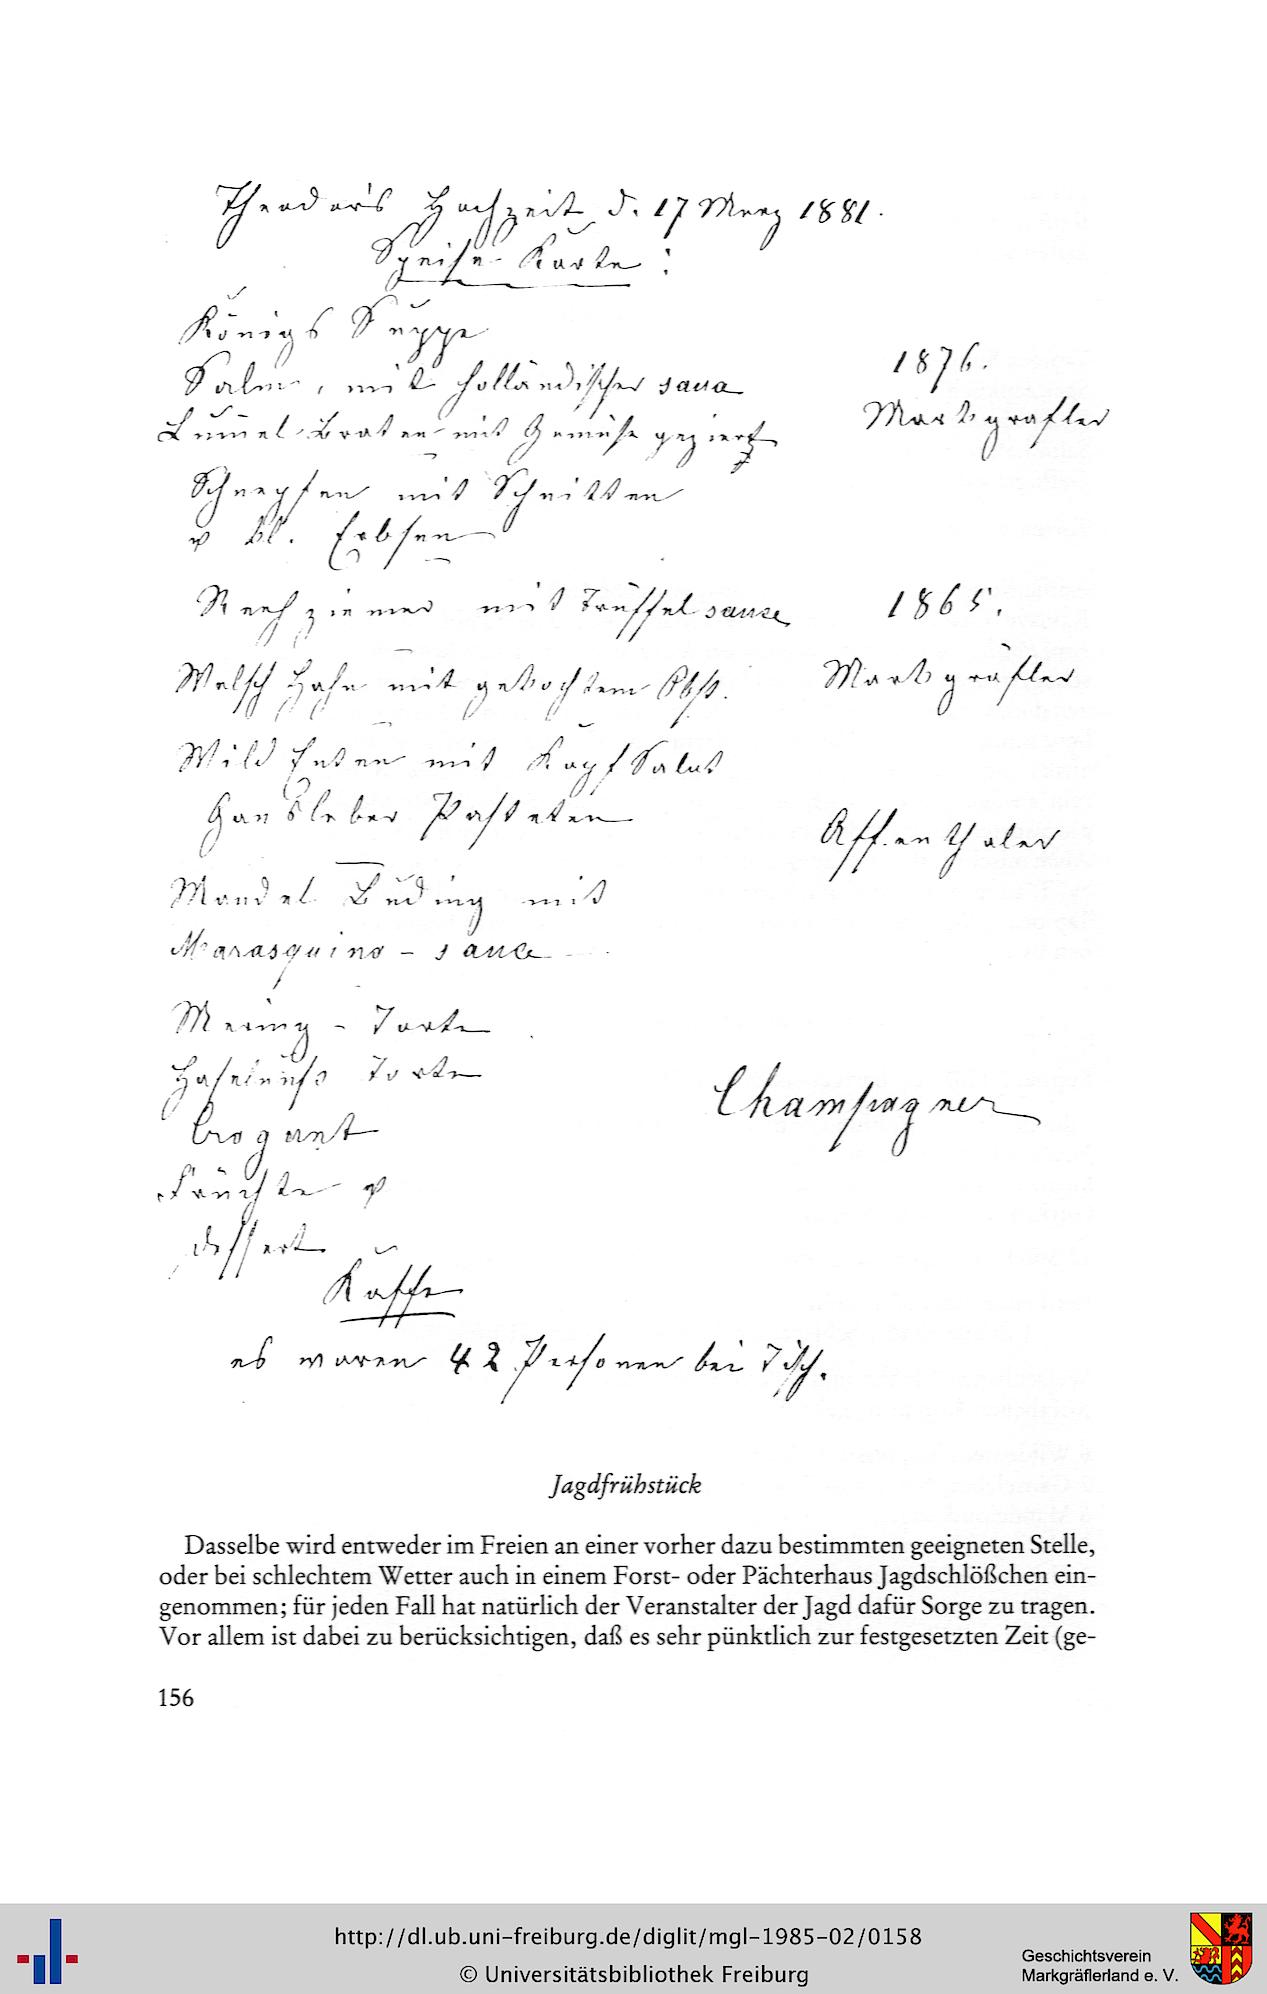 Theodor's Hochzeit d. 17 Merz 1881.
Speise Karte:
Königs Suppe
Salm, mit holländischer saua
1876.
Lum̄el-Braten mit Gemüse geziert
Markgräfler
Schnepfen mit Schnitten
u kl. Erbsen
Reehziemer mit Trüffel sause
1865.
Welsch Hahn mit gekochtem Obst.
Markgräfler
Wild Enten mit Kopf Salat
Gansleber Pasteten
Affenthaler
Mandel Buding mit
Marasquino - sauce
Mering - Torte
Haselnuss Torte
Crogant
Champagner
Früchte u
dessert
Kaffe
es waren 42 Personen bei Tisch.
Jagdfrühstück
Dasselbe wird entweder im Freien an einer vorher dazu bestimmten geeigneten Stelle,
oder bei schlechtem Wetter auch in einem Forst- oder Pächterhaus Jagdschlößchen ein-
genommen; für jeden Fall hat natürlich der Veranstalter der Jagd dafür Sorge zu tragen.
Vor allem ist dabei zu berücksichtigen, daß es sehr pünktlich zur festgesetzten Zeit (ge-
156
http://dl.ub.uni-freiburg.de/diglit/mgl-1985-02/0158
© Universitätsbibliothek Freiburg
Geschichtsverein
Markgräflerland e. V.